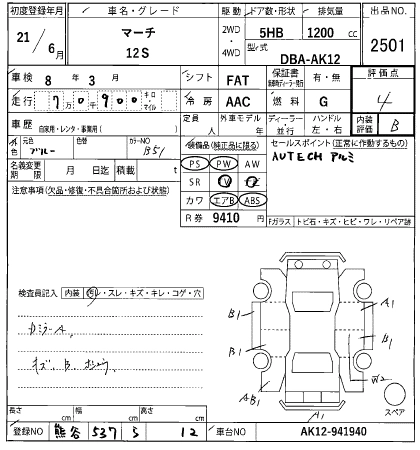 初度登録年月 車名・グレード 駆動 ドア数・形状 排気量 出品NO.
21/6月 マーチ 12S 2WD・4WD 5HB 1200cc 2501
型式 DBA-AK12
車検 8年3月 シフト FAT 保証書 有・無 評価点 4
走行 7万0900 キロ・マイル 冷房 AAC 燃料 G 内装評価 B
車歴 自家用・レンタ・事業用( ) 定員 人 外車モデル 年 ディーラー・並行 ハンドル 左・右
外色 元色 ブルー 色替 カラーNO B51 装備品(純正品に限る) セールスポイント(正常に作動するもの)
名義変更期限 月 日迄 積載 t PS PW AW AUTECHアルミ
注意事項(欠品・修復・不具合箇所および状態) SR
カワ エアB ABS
R券 9410円
Fガラス トビ石・キズ・ヒビ・ワレ・リペア跡
検査員記入 内装 汚レ・スレ・キズ・キレ・コゲ・穴
B1 A1
B1 B1
AB1 W2
A1 スペア
長さ cm 幅 cm 高さ cm
登録NO 熊谷 537 ら 12 車台NO AK12-941940